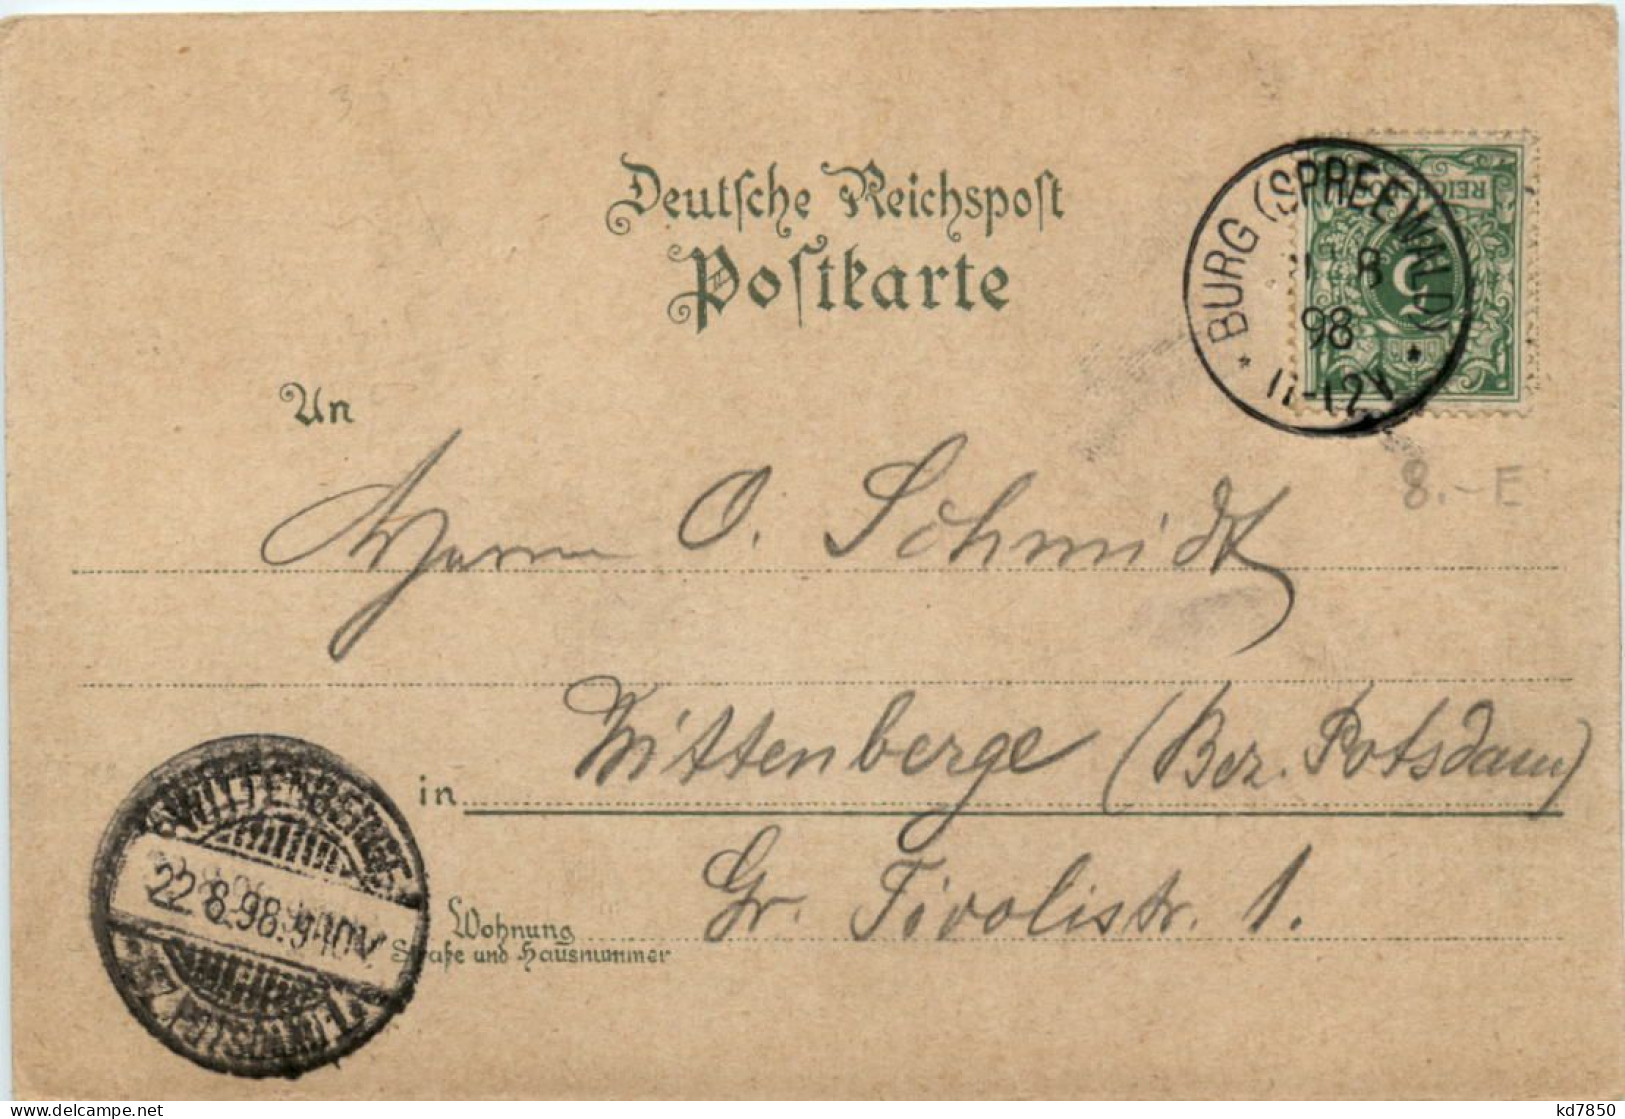 Deutsche Reichspost
Postkarte
REICHSPOST
5
BURG (SPREEWALD)
8
98
* 11-12V *
An
8.-E
Herrn O. Schmidt
Wittenberge (Bez. Potsdam)
in
Gr. Tivolistr. 1.
Wohnung
Straße und Hausnummer
WITTENBERGE
22.8.98.9-10V.
(BZ. POTSDAM)
kd7850